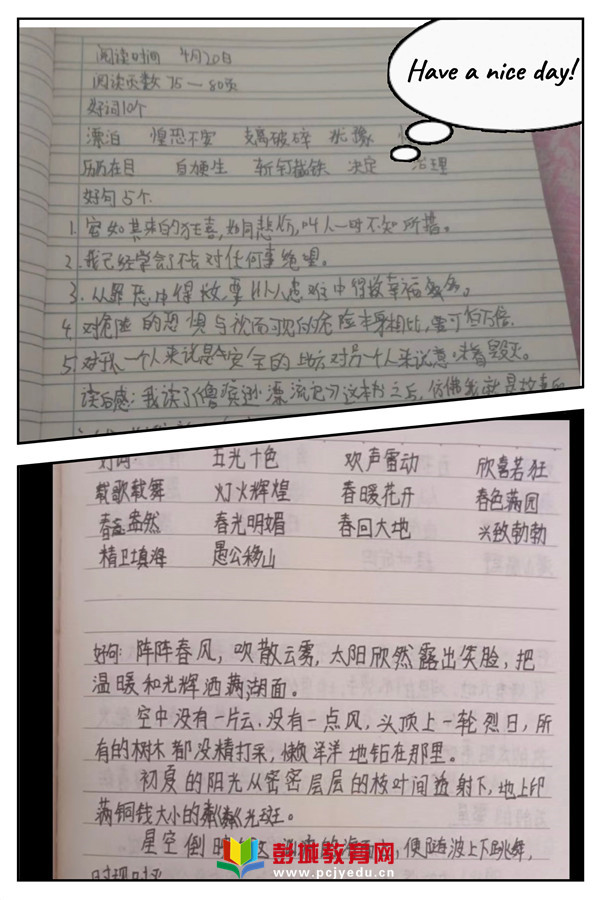 Have a nice day!
阅读时间 4月20日
阅读页数 75—80页
好词10个
漂泊 惶恐不安 支离破碎 犹豫
历历在目 自横生 斩钉截铁 决定 治理
好句5个.
1. 突如其来的狂喜,如同悲伤,叫人一时不知所措。
2. 我已经学会了不去对任何事绝望。
3. 从罪恶中得救,要比从患难中得救幸福
4. 对危险的恐惧与视而可见的危险本身相比,要可怕万倍.
5. 对于一个人来说是安全的 对另一个人来说意味着毁灭。
读后感:我读了《鲁宾逊漂流记》这本书之后,仿佛我就是故事
好词: 五光十色 欢声雷动 欣喜若狂
载歌载舞 灯火辉煌 春暖花开 春色满园
春意盎然 春光明媚 春回大地 兴致勃勃
精卫填海 愚公移山
好句:阵阵春风,吹散云雾,太阳欣然露出笑脸,把
温暖和光辉洒满湖面。
空中没有一片云,没有一点风,头顶上一轮烈日,所
有的树木都没精打采,懒洋洋地钻在那里。
初夏的阳光从密密层层的枝叶间透射下,地上印
满铜钱大小的粼粼光斑。
星空倒映 的海面 ,便随波上下跳舞,
时现时
彭城教育网
www.pcjyedu.cn